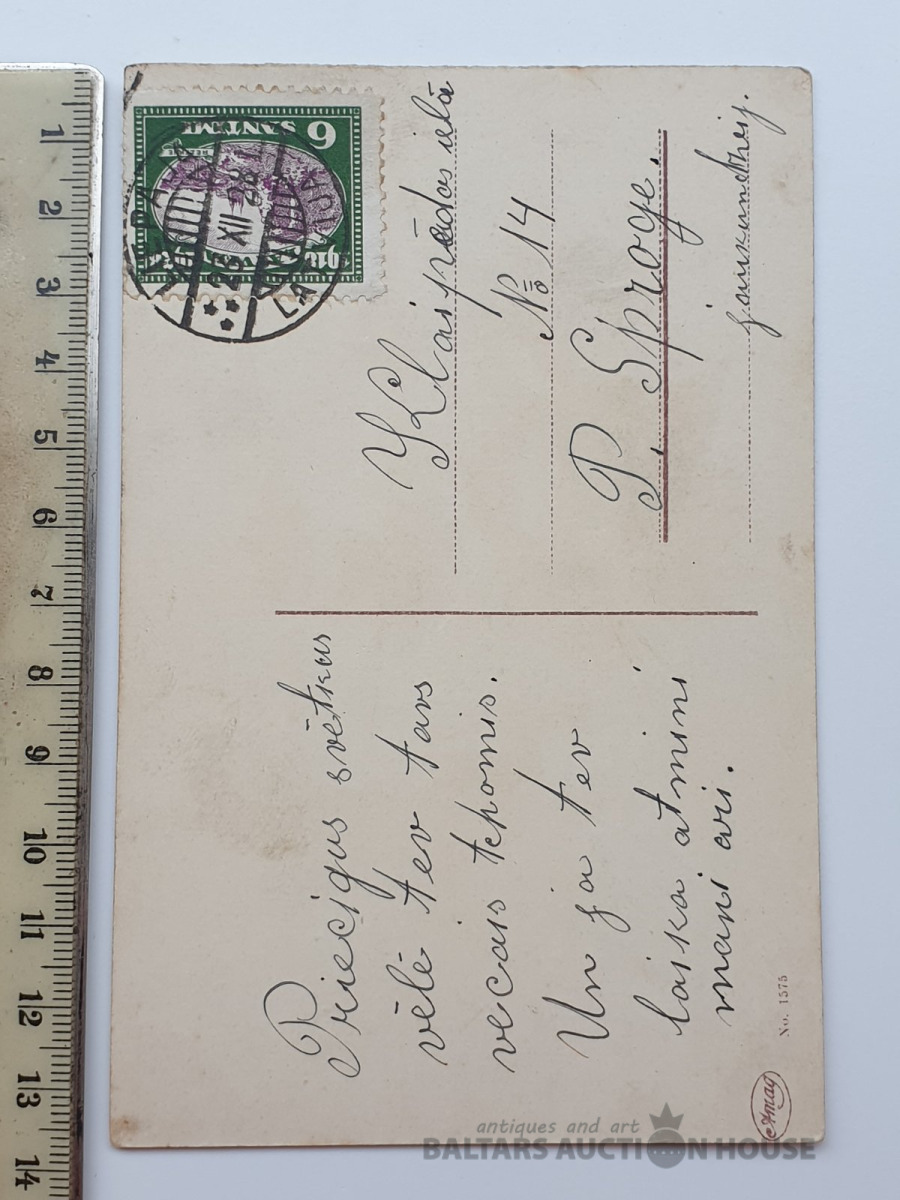 Priecigus svētkus
vēlē tev tavs
vecais tehomis.
Un ja tev
laika atmini
mani ari.
Klaipēdas ielā
№ 14
P. Sproģe.
jaunkundzei.
6 SANTIMI 6
LATVIJA
28 XII 28
Amag
No. 1575
1
2
3
4
5
6
7
8
9
10
11
12
13
14
antiques and art
BALTARS AUCTION HOUSE